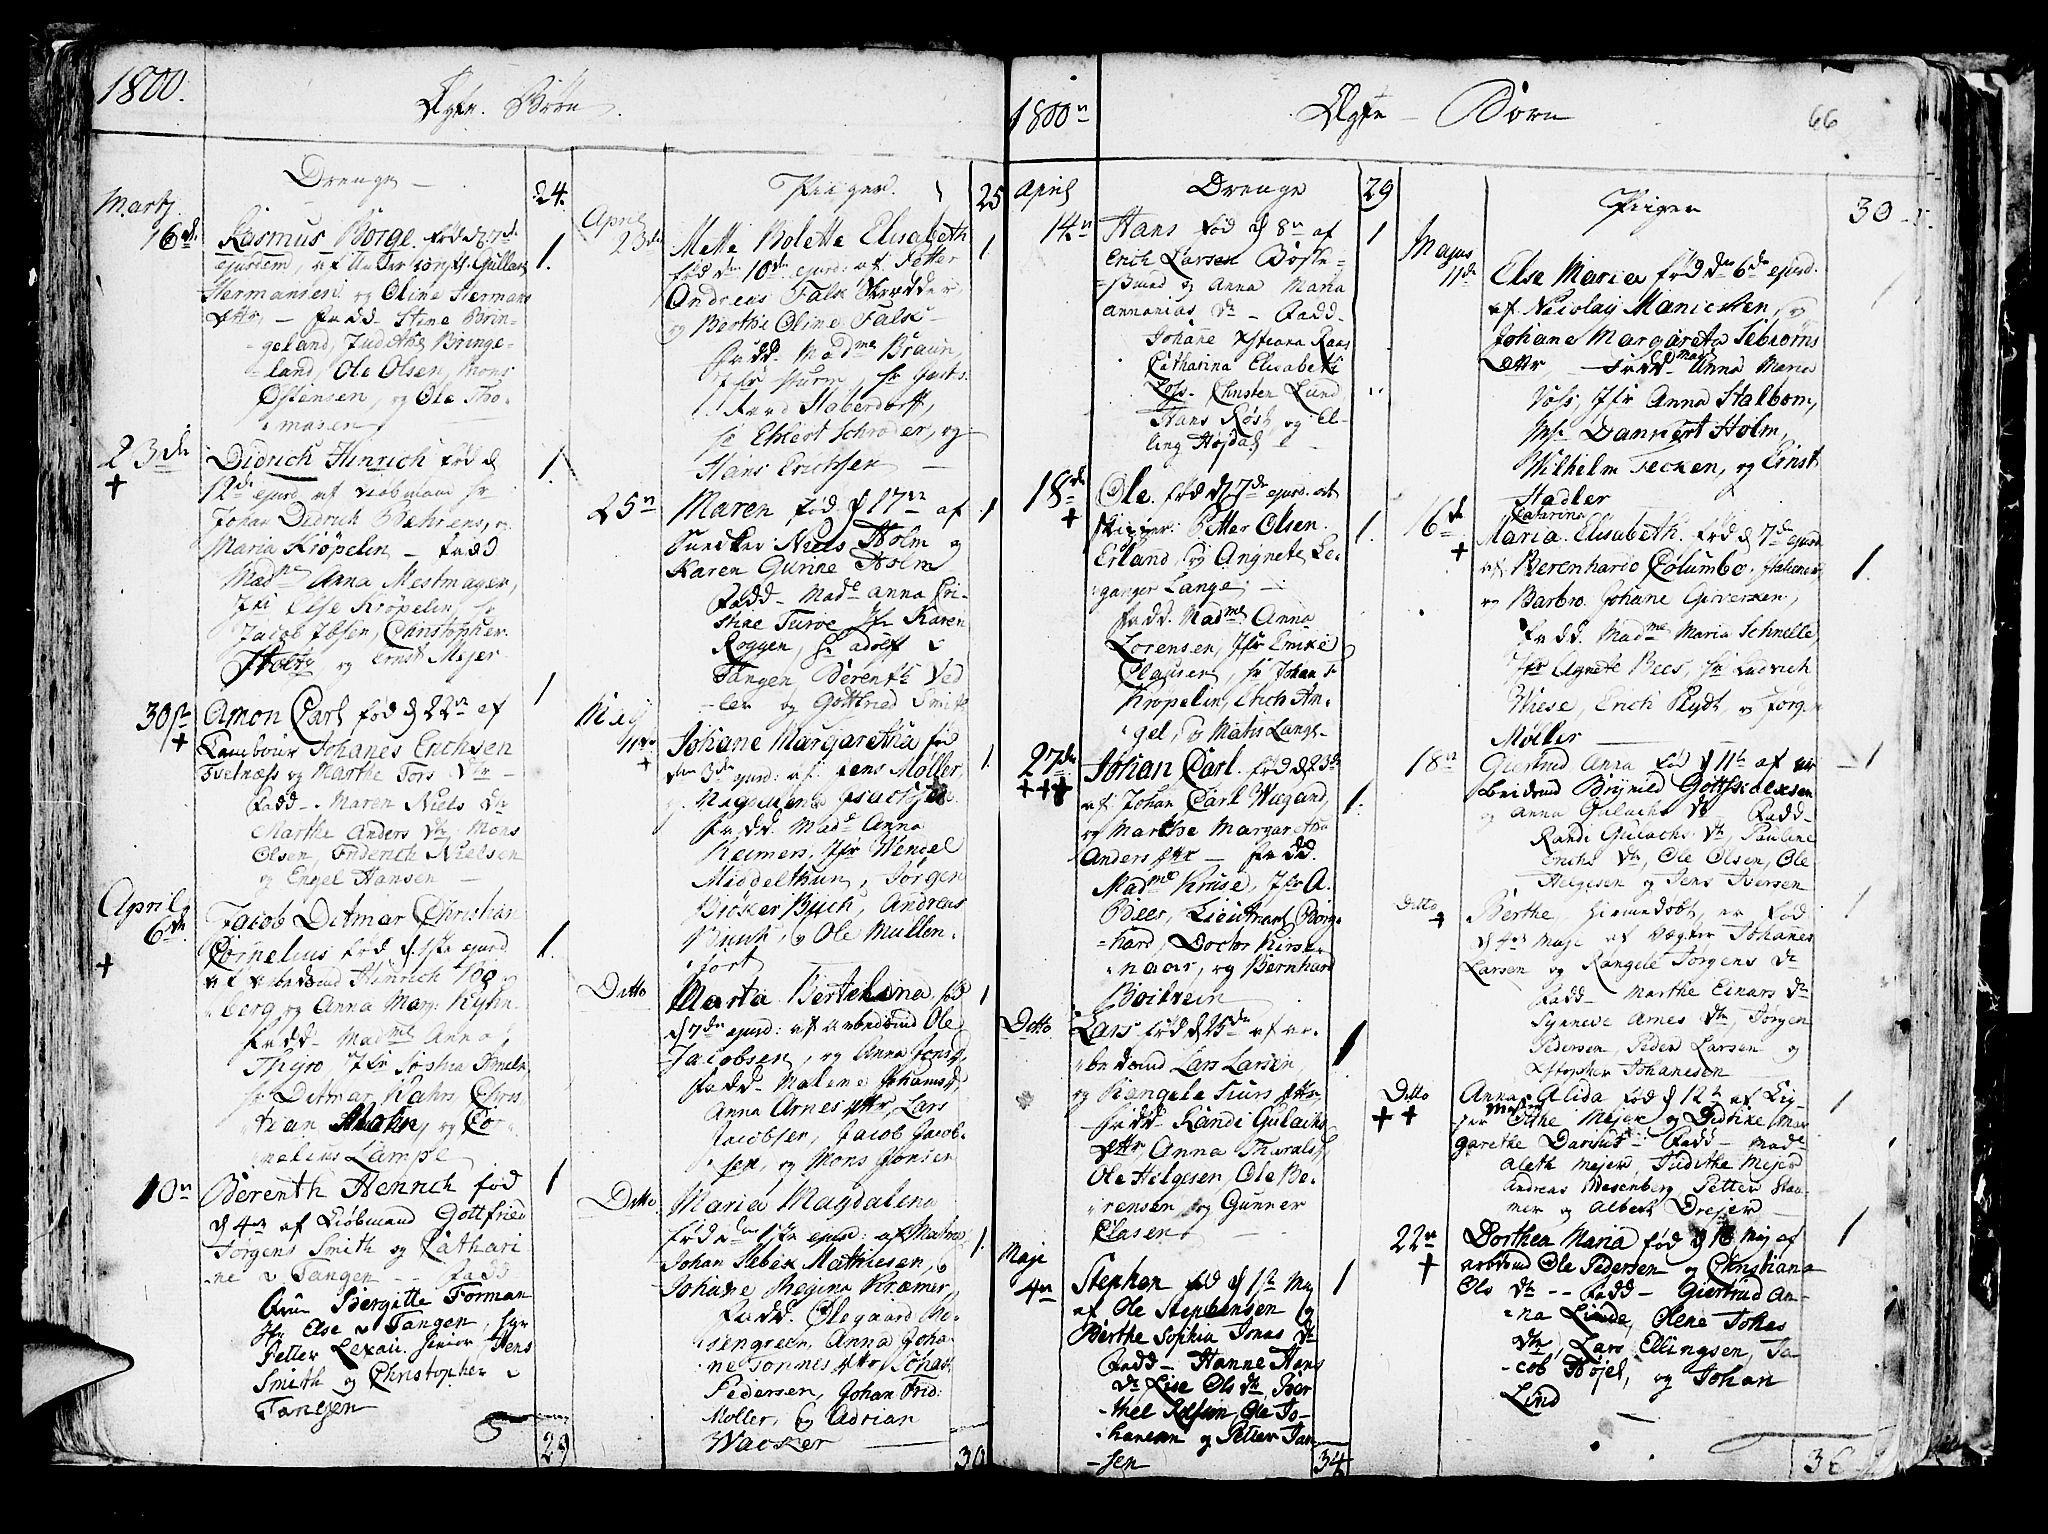 1800.
Ægte Børn.
Drenge
24.
Martj
16de
Rasmus Børge. fød d. 7de
1.
ejusdem, af
Hermansen og Oline Hermans
Dttr, — Fadd. Stine Brin-
geland, Judithe Bringe-
land, Ole Olsen, Mons
Østensen, og Ole Tho-
masen
23de
+
Didrich Hinrich fød d
1.
12te ejusd. af Kiøbmand Hr
Johan Didrich Behrens, og
Maria Krøpelin — Fadd
Madme Anna Mestmager,
Jfr Else Krøpelin, Hr
Jacob Ibsen, Christopher
Holtz, og Ernst Mejer
30te
+
Amon Carl fød d 22n af
1
Tambour Johanes Erichsen
Tvetnæss og Marthe Tors Dtr —
Fadd — Maren Niels Dtr
Marthe Anders Dtr, Mons
Olsen, Friderich Nielsen
og Engel Hansen —
April
6te
+
Jacob Ditmar Christian
Cornelius fød d. 1ste ejusd.
1.
af Arbeidsmd Hinrich
berg og Anna Marg: Kyhn
Fadd — Madme Anna
Thyro, Jfr Sophia
Hr Ditmar Kahrs, Chris
tian Mohn, og Cor
nelius Lampe
10n
Berenth Henrich fød
1
d 4n af Kiøbmand Gottfried
Jørgens Smith og Cathari
ne v Tangen — Fadd
Frue Bergitte Forman
Jfr Else v Tangen, Hr
Petter Lexau Senior, Hens
Smith og Christopher v
Tangen
29
Piiger.
25
April
23de
Mette Bolette Elisabeth
1
fød den 10de ejusd: af Petter
Andreas Falk Skrædder
og Berthe Oline Falk —
Fadd. Madme Braun,
Jfr Sturm, Hr
Haberdorff,
Hr Ehlert Schrøder, og
Hans Erichsen —
25n
Maren fød d 17n af
1
Snedker Niels Holm og
Karen Gurine Holm
Fadd — Made Anna Cri-
stine Turoe Jfr Karen
Roggen, Hr Adolf v
Tangen Berenth Ved
ler og Gottfried Smith
Maji
11te
+
Johane Margaretha fød
1.
den 3de ejusd: af Jens Møller,
og
Fadd. Made Anna
Reimers, Jfr Wencel
Middelthun, Jørgen
Brøker Buch, Andreas
Buuk, og Ole Mullen-
fort
Ditto
Marta Bertehana, fød
1
d 7de ejusd: af Arbeidsmd Ole
Jacobsen, og Anna Jens
Fadd — Malene Johansd
Anna Arnes Dttr, Lars
Jacobsen, Jacob Jacob-
sen, og Mons Jonsen
Ditto
Maria Magdalena
fød den 1ste ejusd: af Matros
1.
Johan Sebek Mathiesen, og
Johane Regina Kræmer,
Fadd. Ølegaard Mo-
sengreen, Anna Joha-
ne Tonnes Dttr, Johan
Pedersen, Johan Frid:
Møller, og Adrian
Wacker —
30
1800n
Ægte — Børn
66
April
Drenge
29
14n
Hans fød d 8n af
1
Erich Larsen Bosse-
smed og Anna Maria
Annanias Dtr — Fadd —
Johane Xstiana Raas
Catharina Elisabeth
Loss. Christen Lund
Hans Røst og El-
ling Højdal —
18de
+
Ole. fød d 7de ejusd. af
Skipper: Petter Olsen
1.
Erland, og Angnete Le-
ganger Lange —
Fadd. Madme Anna
Lorensen, Jfr Emike
Clausen, Hr Johan F
Krøpelin, Erich An-
gel, og Matis Lange —
27de
+++
Johan Carl. fød d 23de
af Johan Carl Weegand,
1.
og Marthe Margaretha
Anders Dttr — Fadd.
Madme Kruse, Jfr A.
Bees, Lieutnant Borg-
hard, Doctor Kirse-
naar, og Bernhard
Boilvein
Ditto
Lars fød d 25de af Ar-
1
beidsmd Lars Larsen,
og Rangele Siurs Dttr,
Fadd — Randi Gulachs
Dttr, Anna Tharalds
Ole Helgesen, Ole Be-
rensen og Gunner
Clasen —
Maji
4n
Stephen fød d 1te Maj
1
af Ole Stephensen og
Berthe Sophia Jonas Dtr
Fadd — Hanne Hans
Dtr Lise Ols Dtr, Ber
thel Rolfsen, Ole Jo-
hanesen og Petter Jan
sen
34
Piiger
30
Majus
11te
Else Maria fød den 6de ejusd.
1
af Nicolay Manicken, og
Johane Margareta Sebiørns
Dttr — Fadd — Made Anna Maria
Voss, Jfr Anna Stalbom,
Mr. Dannert Holm,
Wilhelm Fecken, og Ernst
Stadler
16de
+
Catarina
Maria Elisabeth. fød d 7de ejusd
af Berenhardo Columbo. Italiener,
1.
og Barbro Johane Giverzen,
Fadd. Madme Maria Schnelle
Jfr Agnete Bees, Hr Ludvich
Wiese, Erich Plydt, og Jørgen
Møller —
18n
Giertrud Anna fød d 11te af Ar
1
beidsmd Brynild Gottskalksen
og Anna Gulachs Dtr Fadd —
Randi Gulachs Dtr, Pauline
Erichs Dtr, Ole Olsen, Ole
Helgesen og Jens Iversen
Ditto
+
Berthe, hiemedøbt, er fød
1
d 4n Maji af Vægter Johannes
Larsen og Rangele Jørgens Dtr
Fadd — Marthe Einars Dtr
Synneve Arnes Dtr, Jørgen
Pedersen, Peder Larsen og
Xstopher Johanesen —
Ditto
++
Anna Alida fød d 12te af Lig-
1
ger Mejer og Didrike Mar
garethe Darsus — Fadd — Made
Aleth Mejer, Judithe Mejer
Andreas Wesenberg Petter Stau-
mer og Albert Drejer —
22n
+
Dorthea Maria fød d Maj af
1
Arbdsmd Ole Pedersen og Christiana
Ols Dtr — Fadd — Giertrud An-
na Linde, Olene Johas
Dtr, Lars Ellingsen, Ja-
cob Højel, og Johan
Lind —
36